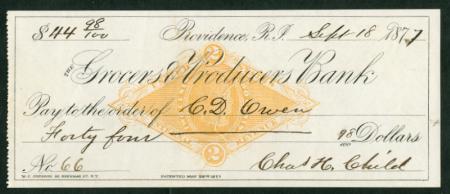 $44 98/100 Providence, R.I. Sept 18 1877
THE Grocers & Producers Bank
Pay to the order of C.D. Owen
Forty four 98/100 Dollars
No 66 Chas H. Child
PATENTED MAY